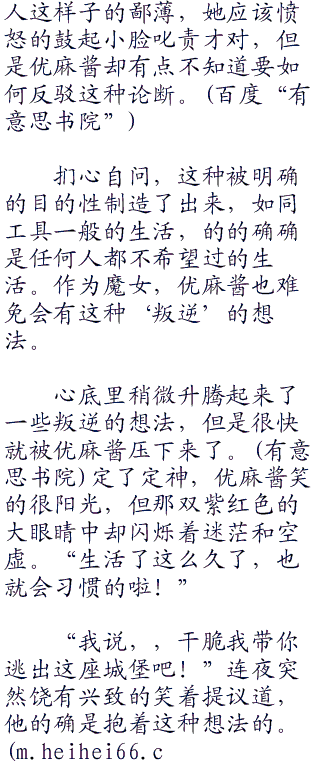 人这样子的鄙薄，她应该愤
怒的鼓起小脸叱责才对，但
是优麻酱却有点不知道要如
何反驳这种论断。(百度“有
意思书院”)
扪心自问，这种被明确
的目的性制造了出来，如同
工具一般的生活，的的确确
是任何人都不希望过的生
活。作为魔女，优麻酱也难
免会有这种‘叛逆’的想
法。
心底里稍微升腾起来了
一些叛逆的想法，但是很快
就被优麻酱压下来了。(有意
思书院)定了定神，优麻酱笑
的很阳光，但那双紫红色的
大眼睛中却闪烁着迷茫和空
虚。“生活了这么久了，也
就会习惯的啦！”
“我说，，干脆我带你
逃出这座城堡吧！”连夜突
然饶有兴致的笑着提议道，
他的确是抱着这种想法的。
(m.heihei66.c